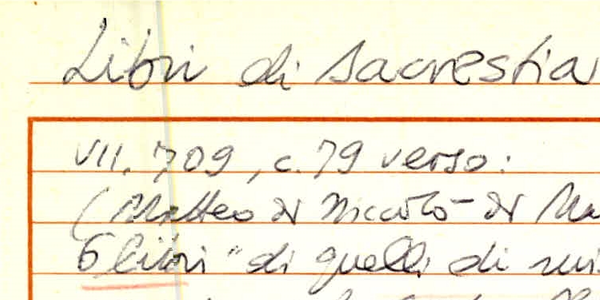 Libri di sacrestia
VII. 709, c. 79 verso:
(Matteo di Niccolò di Ma
6 libri "di quelli di